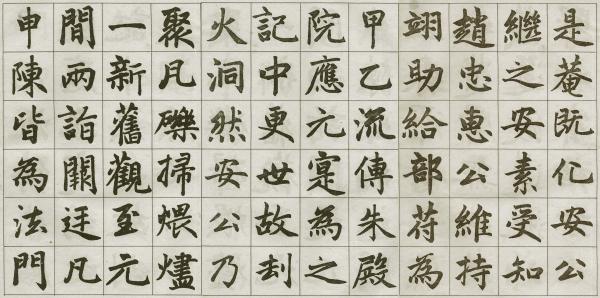 是菴既化安公
繼之安素受知
趙忠惠公維持
翊助給部符為
甲乙流傳朱殿
院應元寔為之
記中更世故刦
火洞然安公乃
聚瓦礫掃煨燼
一新舊觀至元
間兩詣闕廷凡
申陳皆為法門